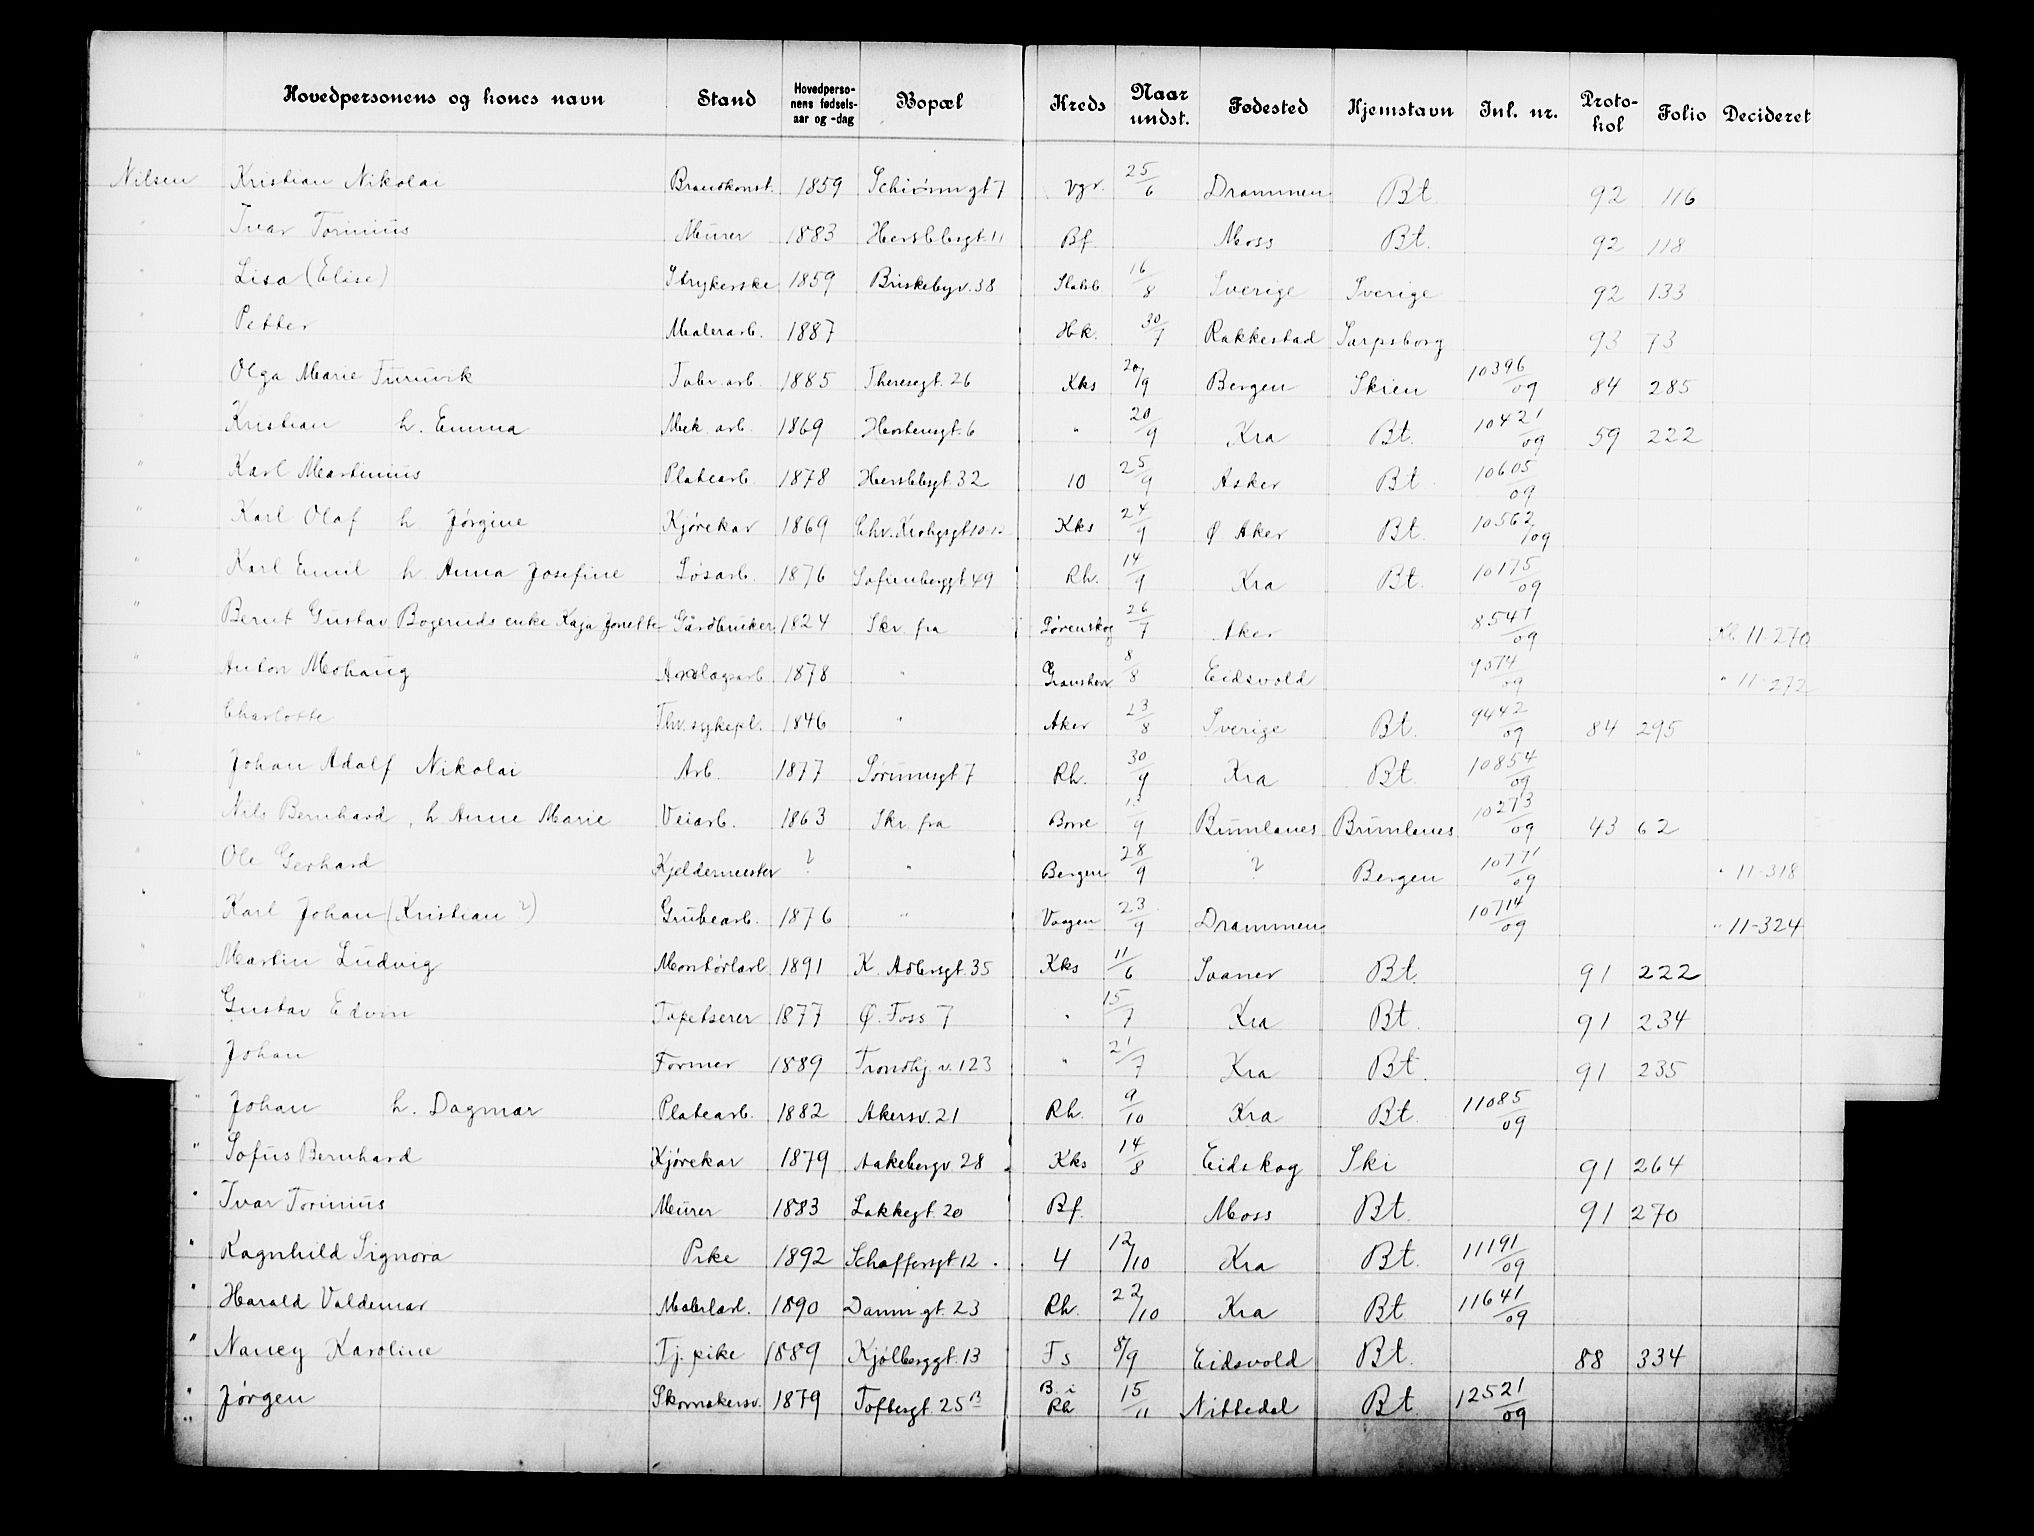 Hovedpersonens og kones navn Stand Hovedpersonens fødselsaar og -dag Bopæl Kreds Naar undst. Fødested Hjemstavn Inl. nr. Protokol Folio Decideret
Nilsen Kristian Nikolai Brandkonst. 1859 gt 7 Vgr. 25/6 Drammen Bt 92 116
" Ivar Torinius Murer 1883 Herslebsgt. 11 Bf. Moss Bt. 92 118
" Lisa (Elise) Strykerske 1859 Briskebyv. 38 16/8 Sverige Sverige 92 133
" Petter Malerarb. 1887 Hk. 30/7 Rakkestad Sarpsborg 93 73
" Olga Marie Furuvik Fabr. arb. 1885 Theresegt. 26 Kks 20/9 Bergen Skien 10396/09 84 285
" Kristian h. Emma Mek. arb. 1869 Herslebsgt. 6 " 20/9 Kra Bt. 10421/09 59 222
" Karl Martinius Platearb. 1878 Herslebsgt. 32 10 25/9 Asker Bt. 10605/09
" Karl Olaf h Jørgine Kjørekar 1869 Chr. Krohgsgt 10-12 Kks 24/9 Ø Aker Bt. 10562/09
" Karl Emil h Anna Josefine Løsarb. 1876 Sofienberggt 49 Rh. 14/9 Kra Bt. 10175/09
" Bernt Gustav Bogeruds enke Kaja Jonette Gårdbruker 1824 Skr. fra Lørenskog 26/7 Aker 8541/09 11-270
" Anton Mohaug Anlægsarb. 1878 " Gransherr 8/8 Eidsvold 9574/09 " 11-272
" Charlotte Fhv. sykepl. 1846 " Aker 23/8 Sverige Bt. 9442/09 84 295
" Johan Adolf Nikolai Arb. 1877 Sørumsgt 7 Rh. 30/9 Kra Bt. 10854/09
" Nils Bernhard, h Anne Marie Veiarb. 1863 Skr. fra Borre /9 Brunlanes Brunlanes 10273/09 43 62
" Ole Gerhard Kjeldermester ? " Bergen 28/9 ? Bergen 10771/09 " 11-318
" Karl Johan (Kristian ?) Grubearb. 1876 " Vaagen 23/9 Drammen 10714/09 " 11-324
" Martin Ludvig Montørlærl. 1891 K. Adlersgt. 35 Kks 11/6 Svaner Bt. 91 222
" Gustav Edvin Tapetserer 1877 Ø. Foss 7 " 15/7 Kra Bt. 91 234
" Johan Former 1889 Trondhj. v. 123 " 21/7 Kra Bt. 91 235
" Johan h. Dagmar Platearb. 1882 Akersv. 21 Rh. 9/10 Kra Bt. 11085/09
" Sofus Bernhard Kjørekar 1879 Aakebergv. 28 Kks 14/8 Eidskog Ski 91 264
" Ivar Torinius Murer 1883 Lakkegt. 20 Bf. Moss Bt. 91 270
" Ragnhild Signora Pike 1892 Schaffersgt 12. 4 12/10 Kra Bt. 11191/09
" Harald Valdemar Malerlærl. 1890 gt. 23 Rh. 22/10 Kra Bt 11641/09
" Nancy Karoline Tj. pike 1889 Kjølberggt. 13 Fs 8/9 Eidsvold Bt. 88 334
" Jørgen Skomakersv. 1879 Toftesgt. 25 B B. i Rh 15/11 Nittedal Bt. 12521/09
"